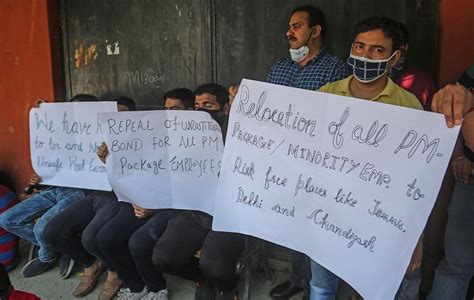 We have
to live and
Unsafe West
REPEAL OF UNCONSTITUTIONAL
BOND FOR ALL PM
Package EMPLOYEES
Relocation of all PM-
PACKAGE/MINORITY EMP. to
Risk free places like Jammu,
Delhi and Chandigarh